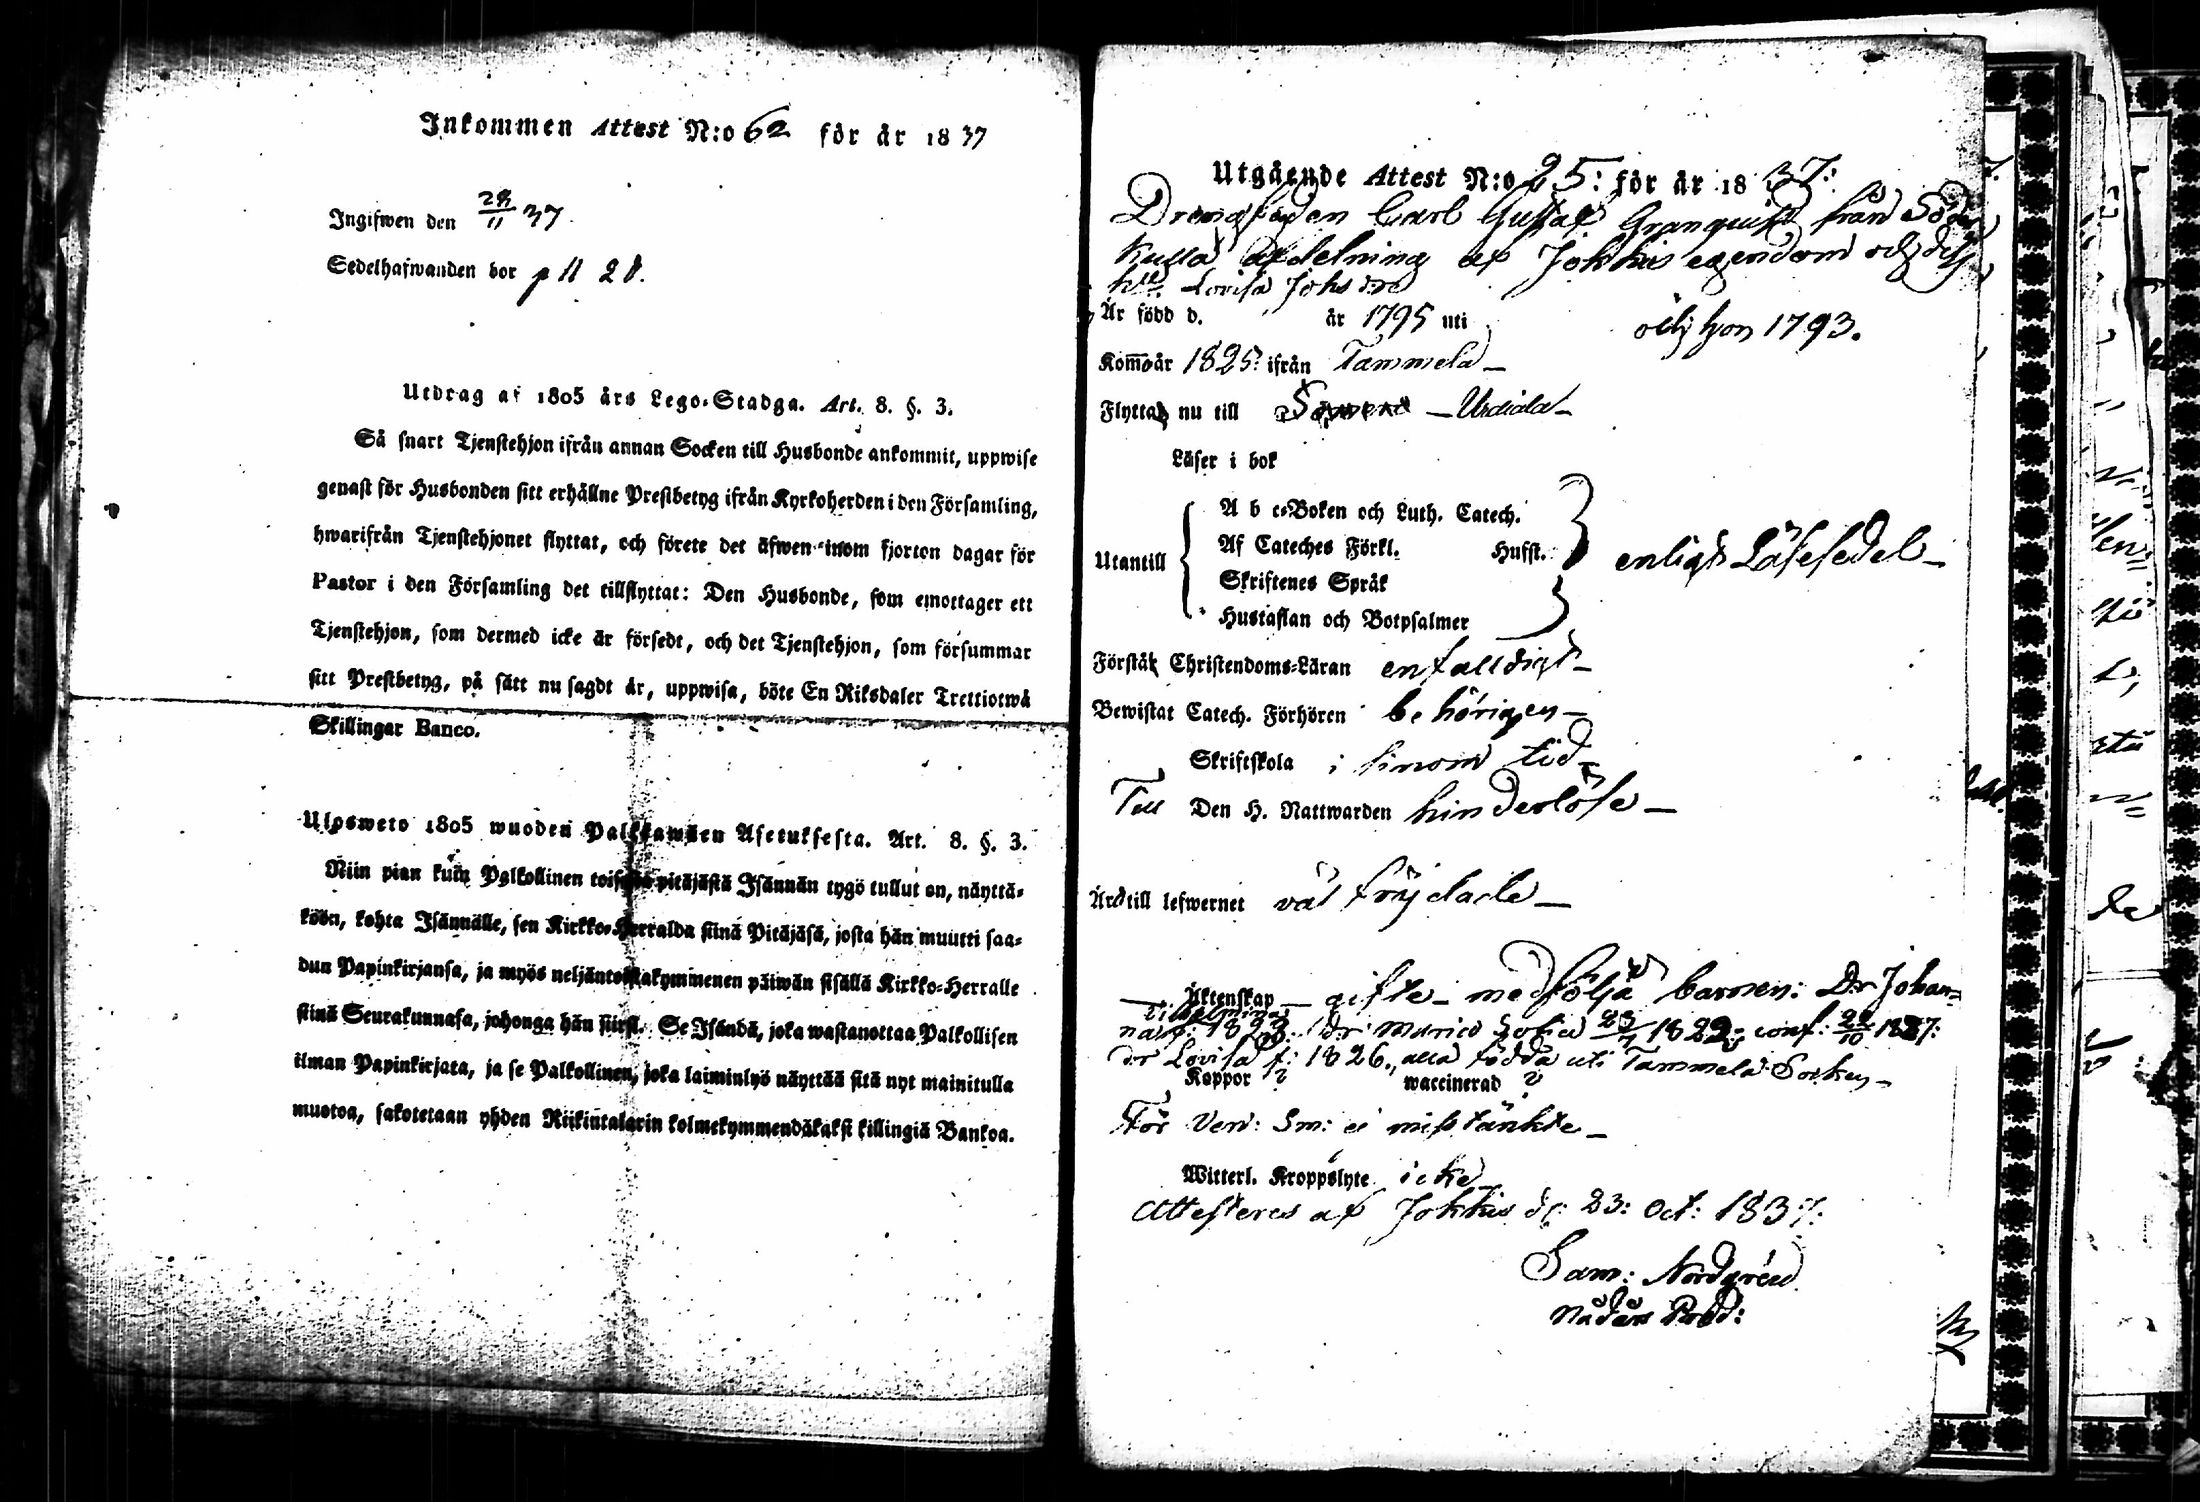 Inkommen Attest N:o 62 för år 1837
Ingifwen den 28/11 37.
Sedelhafwanden bor p 11 28.
Utdrag af 1805 års Lego-Stadga. Art. 8. §. 3.
Så snart Tjenstehjon ifrån annan Socken till Husbonde ankommit, uppwise
genast för Husbonden sitt erhållne Prestbetyg ifrån Kyrkoherden i den Församling,
hwarifrån Tjenstehjonet flyttat, och förete det äfwen inom fjorton dagar för
Pastor i den Församling det tillflyttat: Den Husbonde, som emottager ett
Tjenstehjon, som dermed icke är försedt, och det Tjenstehjon, som försummar
sitt Prestbetyg, på sätt nu sagdt är, uppwisa, böte En Riksdaler Trettiotwå
Skillingar Banco.
Ulosweto 1805 wuoden Palkkawäen Asetuksesta. Art. 8. §. 3.
Niin pian kuin Palkollinen toisesta pitäjästä Isännän tygö tullut on, näyttä-
köön, kohta Isännälle, sen Kirkko-Herralda siinä Pitäjäsä, josta hän muutti saa-
dun Papinkirjansa, ja myös neljäntoistakymmenen päiwän sisällä Kirkko-Herralle
siinä Seurakunnasa, johonga hän siirsi. Se Isändä, joka wastanottaa Palkollisen
ilman Papinkirjata, ja se Palkollinen, joka laiminlyö näyttää sitä nyt mainitulla
muotoa, sakotetaan yhden Riikintalarin kolmekymmendäkaksi killingiä Bankoa.
Utgående Attest N:o 25: för år 1837:
Carl Gustaf Granquist från Söder
kulla afdelning af Jokkis egendom och dess
h:u Lovisa Johsdr
Är född d. år 1795 uti och hon 1793.
Kom̄o år 1825: ifrån Tammela
Flytta nu till Urdiala
Läser i bok
Utantill
A b c-Boken och Luth. Catech.
Af Cateches Förkl. Husst.
Skriftenes Språk
Hustaflan och Botpsalmer
enligt Läsesedel
Förstå Christendoms-Läran enfalldigt
Bewistat Catech. Förhören behörigen
Skriftskola i sinom tid
Till Den H. Nattwarden hinderlöse
Äro till lefwernet väl frejdade
Äktenskap gifte medfölja barnen: Dr Johan-
na Vilhelmina Dr: Maria Sofia conf:
dr Lovisa f: 1826, alla födda uti Tammela Socken
Koppor waccinerad
För Ven: Sm: ei misstänkte
Witterl. Kroppslyte icke
Attesteres af Jokkis d: 23: Oct: 1837:
Sam: Nordgrén
Nådårs Pred: